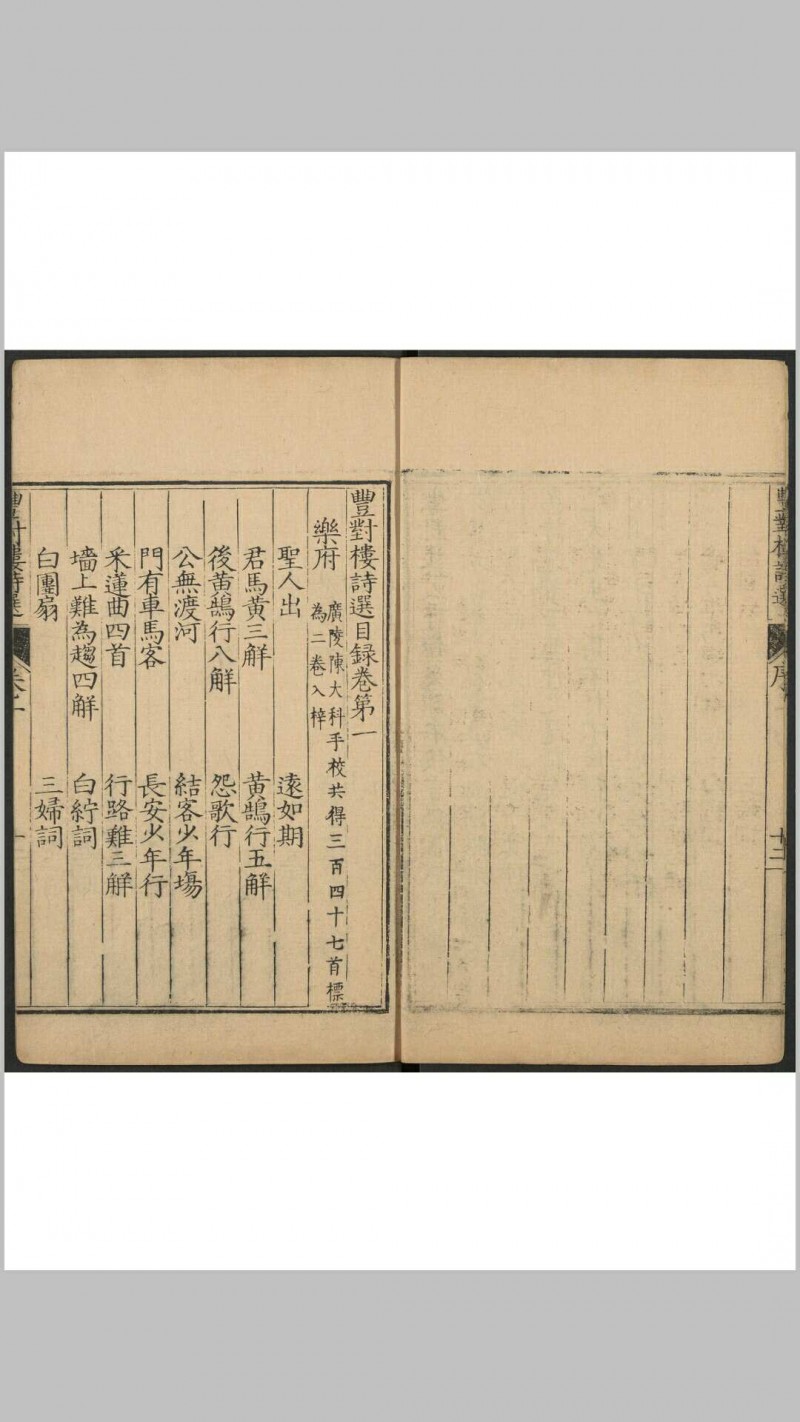 豐對樓詩選
序
十三
豐對樓詩選目録卷第一
樂府 廣陵陳大科手校共得三百四十七首標
為二卷入梓
聖人出 遠如期
君馬黃三解 黃鵠行五解
後黃鵠行八解 怨歌行
公無渡河 結客少年塲
門有車馬客 長安少年行
釆蓮曲四首 行路難三解
墻上難為趨四解 白紵詞
白團扇 三婦詞
豐對樓詩選
卷一
一